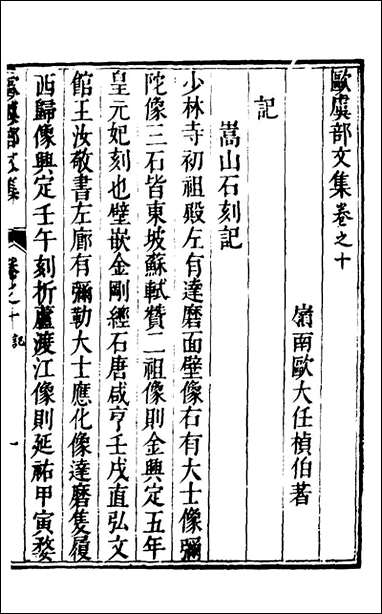 歐虞部文集卷之十
嶺南歐大任楨伯著
記
嵩山石刻記
少林寺初祖殿左有達磨面壁像右有大士像彌
陀像三石皆東坡蘇軾贊二祖像則金興定五年
皇元妃刻也壁嵌金剛經石唐咸亨壬戌直弘文
館王汝敬書左廊有彌勒大士應化像達磨隻履
西歸像興定壬午刻折蘆渡江像則延祐甲寅婺
虞部文集
卷之十記
一